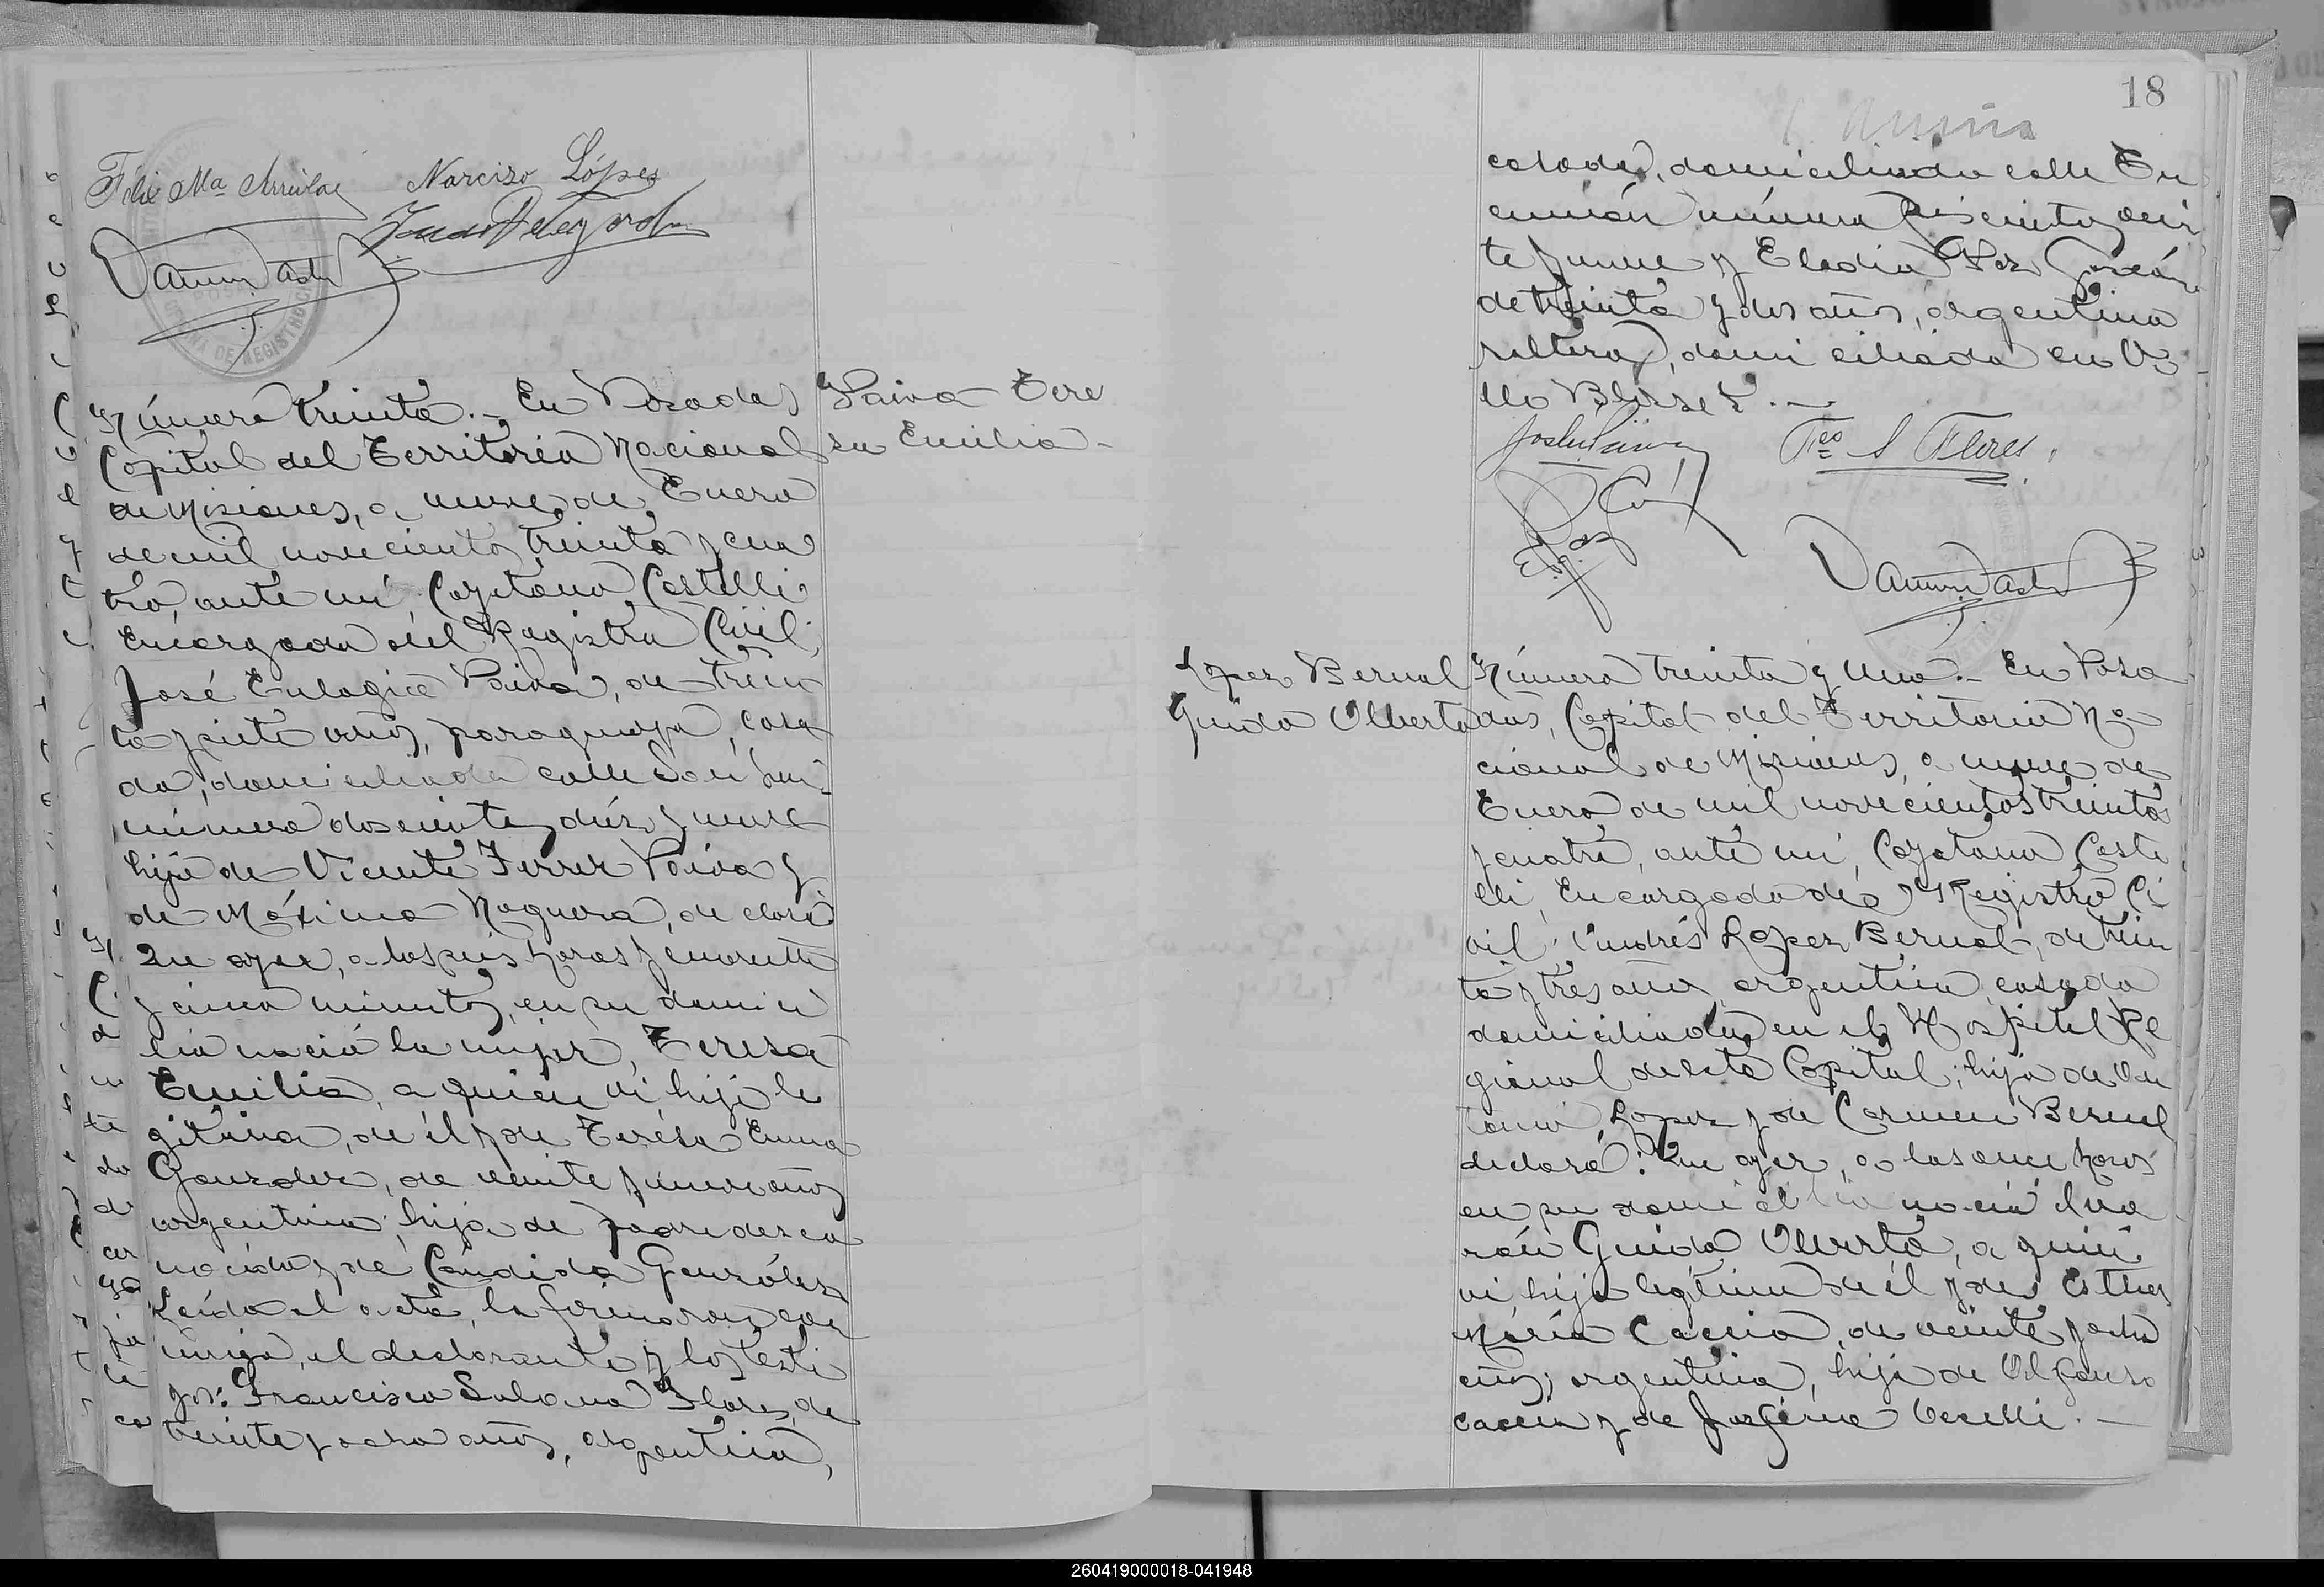 18
Felix Ma Narciso López
OFICINA DE REGISTRO CIVIL
Número treinta.- En Posadas
Paiva Tere
Capital del Territorio Nacional
sa Emilia-
de Misiones, a nueve de Enero
de mil novecientos treinta y cua
tro, ante mi, Cayetano Castelli
Encargado del Registro Civil,
José Eulogio Paiva, de trein
ta y siete años, paraguayo, casa
do, domiciliado calle San Luis
número doscientos diez y nueve
hijo de Vicente Ferrer Paiva y
de Máxima Noguera, declaró
Que ayer, a las seis horas y cuarenta
y cinco minutos, en su domici
lio nació la mujer, Teresa
Emilia, a quien vi, hija le
gítima, de él y de Teresa Emma
Gonzalez, de veinte y nueve años
argentina, hija de padre desco
nocido y de Cándida González
Leída el acta, la firmaron con
migo, el declarante y los testi
gos: Francisco Solano Flores, de
treinta y ocho años, argentino,
casado, domiciliado calle En
carnación número seiscientos vein
te y nueve y Eladio Paz Garzón,
de treinta y dos años, argentino
soltero, domiciliado en
José E Paiva Fco S Flores.
López Bernal
Número treinta y uno.- En Posa
Guido Alberto
das, Capital del Territorio Na
cional de Misiones, a nueve de
Enero de mil novecientos treinta
y cuatro, ante mi, Cayetano Caste
lli, Encargado del Registro Ci
vil, Andrés Lopez Bernal, de trein
ta y tres años, argentino, casado
domiciliado en el Hospital Re
gional de esta Capital, hijo de An
tonio Lopez y de Carmen Bernal
declaró: Que ayer, a las once horas
en su domicilio nació el va
rón Guido Alberto, a quien
vi, hijo legítimo de él y de Esther
María Caccia, de veinte y ocho
años, argentina, hija de Alfonso
Caccia y de Josefina .-
260419000018-041948